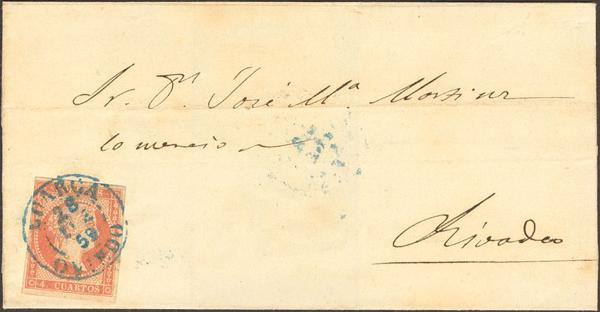 Sr. Dn José Mª Martinez
Comercio
Rivadeo
LUARCA
28
59
OVIEDO
4 CUARTOS